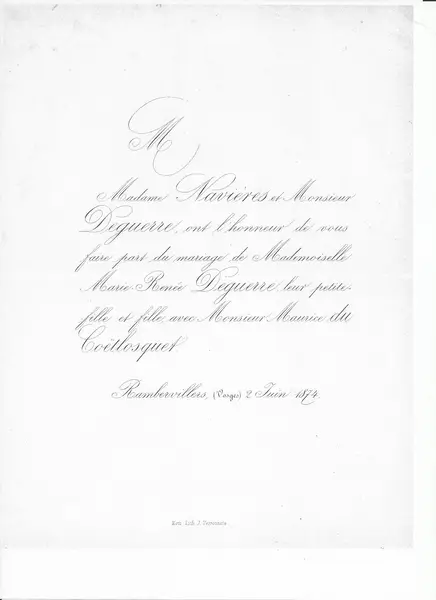 M
Madame Navières et Monsieur
Deguerre, ont l'honneur de vous
faire part du mariage de Mademoiselle
Marie-Renée Deguerre, leur petite-
fille et fille, avec Monsieur Maurice du
Coëtlosquet
Rambervillers, (Vosges) 2 Juin 1874.
Lith. J.